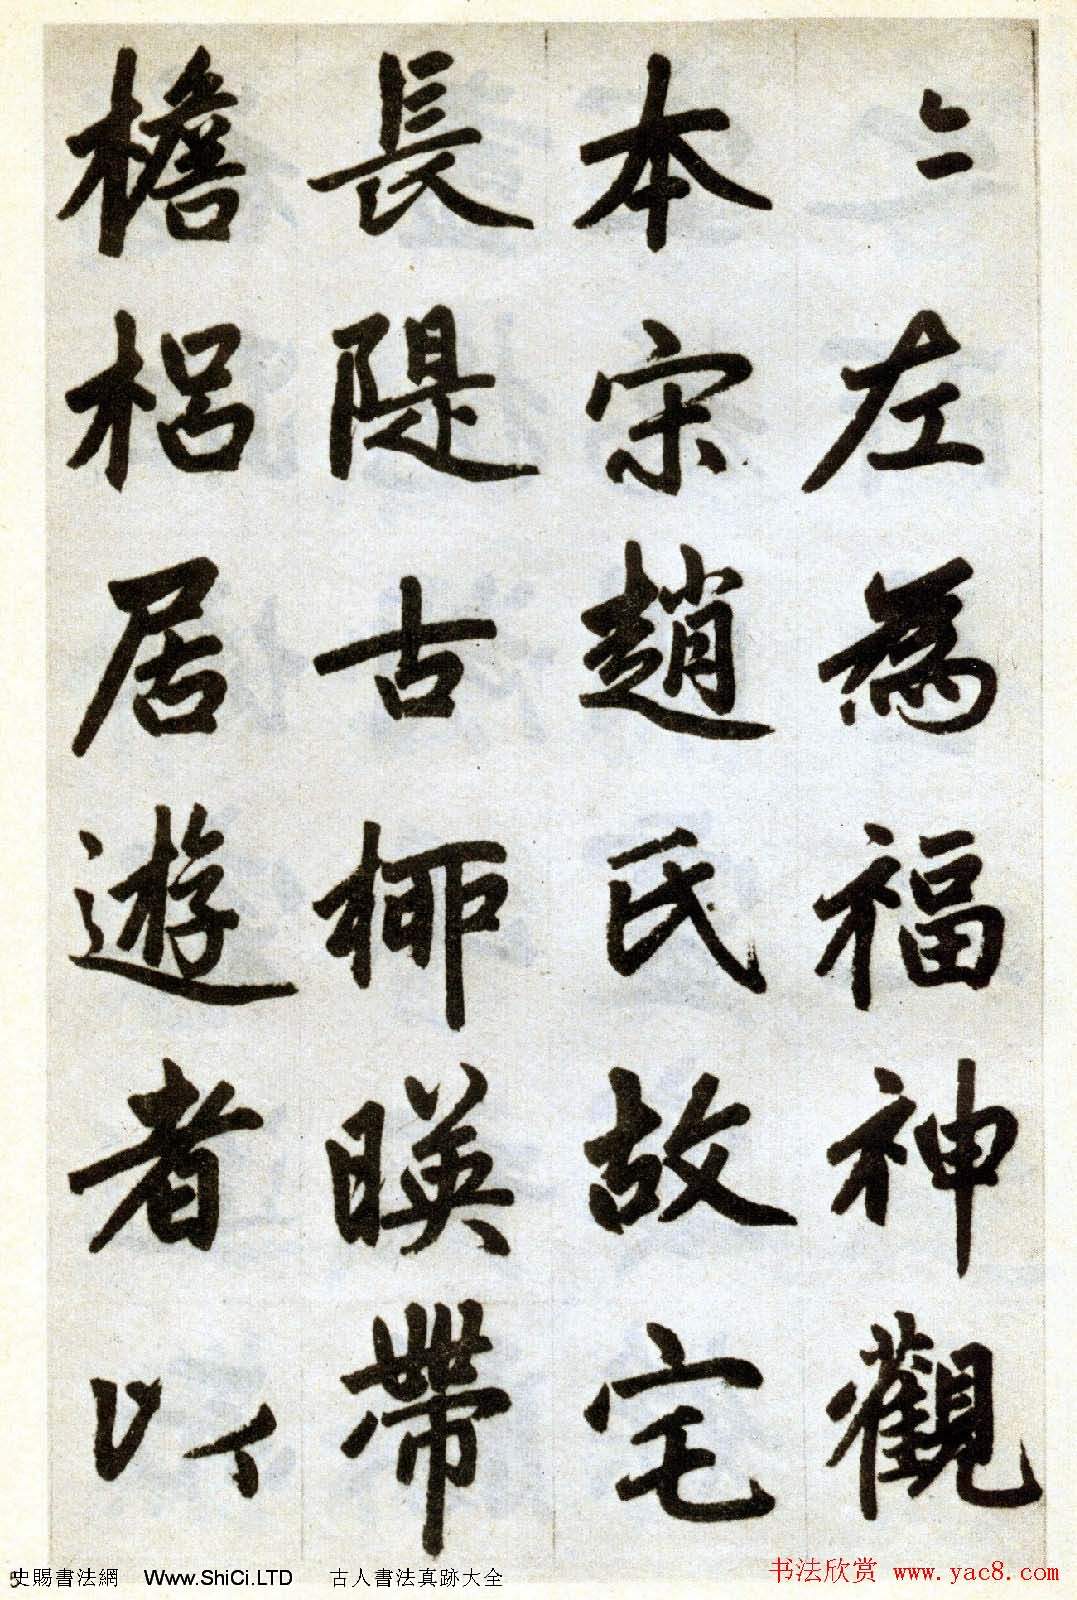 〻左為福神觀
本宋趙氏故宅
長隄古柳暎帶
檐梠居遊者以
史賜書法網 Www.ShiCi.LTD 古人書法真跡大全
书法欣赏 www.yac8.com